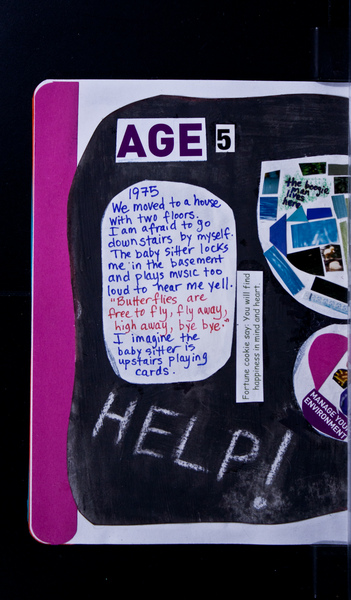 AGE 5
1975
We moved to a house
with two floors.
I am afraid to go
downstairs by myself.
The baby sitter locks
me in the basement
and plays music too
loud to hear me yell.
"Butterflies are
free to fly, fly away,
high away, bye bye."
I imagine the
baby sitter is
upstairs playing
cards.
the boogie
man
lives
here
Fortune cookie say: You will find
happiness in mind and heart.
MANAGE YOUR
ENVIRONMENT
HELP!